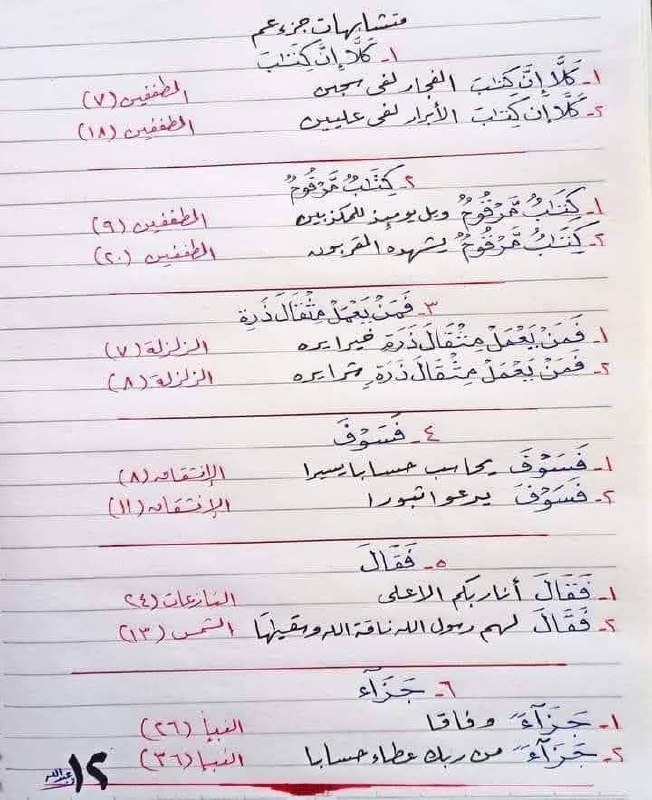 متشابهات جزء عم
١- كَلَّا إِنَّ كِتَٰبَ
١- كَلَّا إِنَّ كِتَٰبَ الفجار لفي سجين المطففين (٧)
٢- كَلَّا إِنَّ كِتَٰبَ الأبرار لفي عليين المطففين (١٨)
٢- كِتَٰبٌ مَّرْقُومٌ
١- كِتَٰبٌ مَّرْقُومٌ ويل يومئذ للمكذبين المطففين (٩)
٢- كِتَٰبٌ مَّرْقُومٌ يشهده المقربون المطففين (٢٠)
٣- فَمَنْ يَعْمَلْ مِثْقَالَ ذَرَةٍ
١- فَمَنْ يَعْمَلْ مِثْقَالَ ذَرَةٍ خيرا يره الزلزلة (٧)
٢- فَمَنْ يَعْمَلْ مِثْقَالَ ذَرَةٍ شرا يره الزلزلة (٨)
٤- فَسَوْفَ
١- فَسَوْفَ يحاسب حسابا يسيرا الإنشقاق (٨)
٢- فَسَوْفَ يدعوا ثبورا الإنشقاق (١١)
٥- فَقَالَ
١- فَقَالَ أنا ربكم الاعلى النازعات (٢٤
٢- فَقَالَ لهم رسول الله ناقة الله وسقيٰهَا الشمس (١٣)
٦- جَزَآء
١- جَزَآءً وفاقا النبإ (٢٦)
٢- جَزَآءً من ربك عطاء حسابا النبإ (٣٦)
١٢ عبدالله